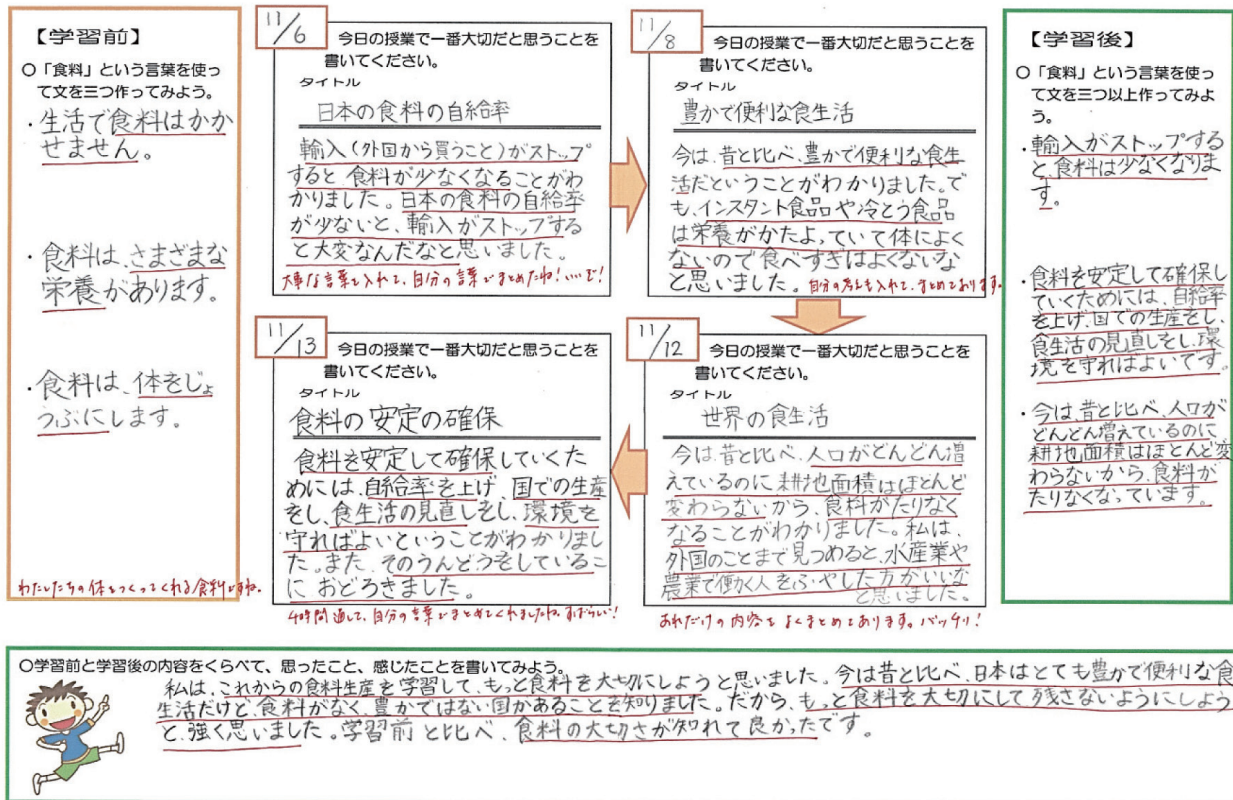 【学習前】
○「食料」という言葉を使っ
て文を三つ作ってみよう。
・生活で食料はかか
せません。
・食料は、さまざまな
栄養があります。
・食料は、体をじょ
うぶにします。
わたしたちの体をつくってくれる食料ですね。
11/6
今日の授業で一番大切だと思うことを
書いてください。
タイトル
日本の食料の自給率
輸入(外国から買うこと)がストップ
すると食料が少なくなることがわ
かりました。日本の食料の自給率
が少ないと、輸入がストップする
と大変なんだなと思いました。
大事な言葉を入れて、自分の言葉でまとめたね!いいぞ!
11/8
今日の授業で一番大切だと思うことを
書いてください。
タイトル
豊かで便利な食生活
今は、昔と比べ、豊かで便利な食生
活だということがわかりました。で
も、インスタント食品や冷とう食品
は栄養がかたよっていて体によく
ないので食べすぎはよくないな
と思いました。
自分の考えも入れて、まとめてあります。
11/12
今日の授業で一番大切だと思うことを
書いてください。
タイトル
世界の食生活
今は、昔と比べ、人口がどんどん増
えているのに耕地面積はほとんど
変わらないから、食料がたりなく
なることがわかりました。私は、
外国のことまで見つめると、水産業や
農業で働く人をふやした方がいいな
と思いました。
あれだけの内容をよくまとめてあります。バッチリ!
11/13
今日の授業で一番大切だと思うことを
書いてください。
タイトル
食料の安定の確保
食料を安定して確保していくた
めには、自給率を上げ、国での生産
をし、食生活の見直しをし、環境を
守ればよいということがわかりまし
た。また、そのうんどうをしているこ
に おどろきました。
4時間通して、自分の言葉でまとめてくれましたね。すばらしい!
【学習後】
○「食料」という言葉を使っ
て文を三つ以上作ってみよ
う。
・輸入がストップする
と、食料は少なくなりま
す。
・食料を安定して確保し
ていくためには、自給率
を上げ、国での生産をし、
食生活の見直しをし、環
境を守ればよいです。
・今は、昔と比べ、人口が
どんどん増えているのに
耕地面積はほとんど変
わらないから、食料が
たりなくなっています。
○学習前と学習後の内容をくらべて、思ったこと、感じたことを書いてみよう。
私は、これからの食料生産を学習して、もっと食料を大切にしようと思いました。今は昔と比べ、日本はとても豊かで便利な食
生活だけど、食料がなく、豊かではない国があることを知りました。だから、もっと食料を大切にして残さないようにしよう
と、強く思いました。学習前と比べ、食料の大切さが知れて良かったです。